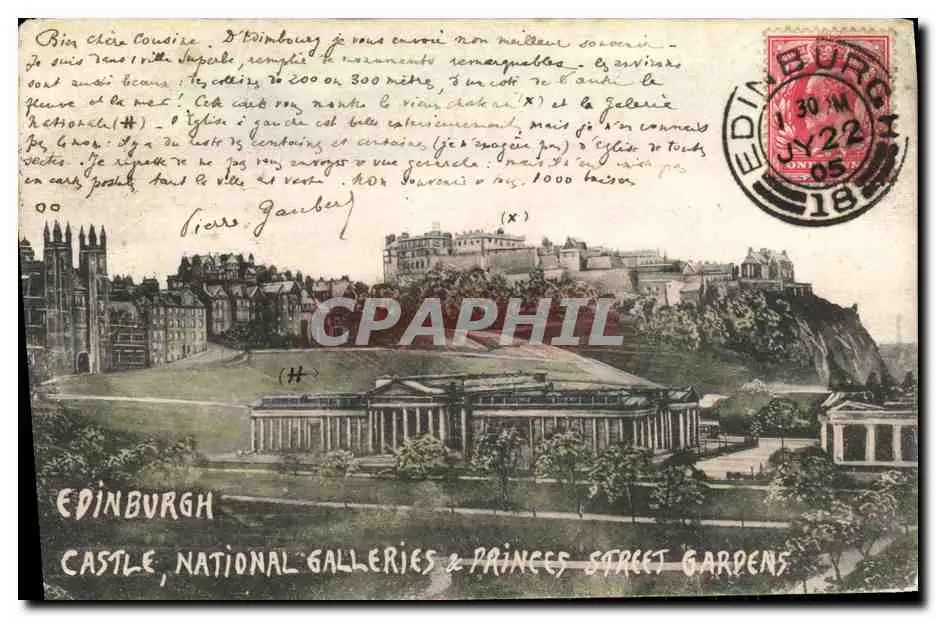 Bien chère Cousine. D'Edimbourg je vous envoie mon meilleur souvenir.
Je suis dans 1 ville superbe, remplie de monuments remarquables. les environs
sont aussi beaux: les collines de 200 ou 300 mètres, d'un coté de l'autre le
fleuve et la mer! Cette carte vous montre le vieux chateau (X) et la Galerie
Nationale (#) - l'Eglise à gauche est belle extérieurement, mais je n'en connais
pas le nom: il y a du reste des centaines et centaines (je n'exagère pas) d'Eglise de toutes
sectes. Je regrette de ne pas vous envoyer de vue generale: mais il n'en existe pas
en cartes postales, tant la ville est vaste. Mon souvenir à tous. 1000 baisers
Pierre Gaubert
oo
(X)
(#)
EDINBURGH
1 30 PM
JY 22
05
18
ONE PENNY
CPAPHIL
EDINBURGH
CASTLE, NATIONAL GALLERIES & PRINCES STREET GARDENS